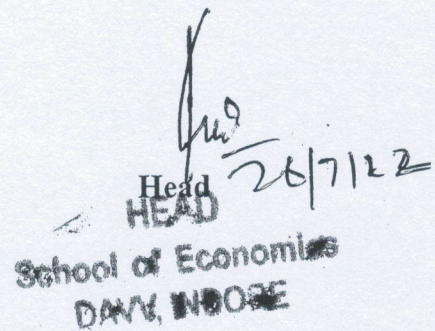 Head 26/7/22
HEAD
School of Economics
DAVV, INDORE